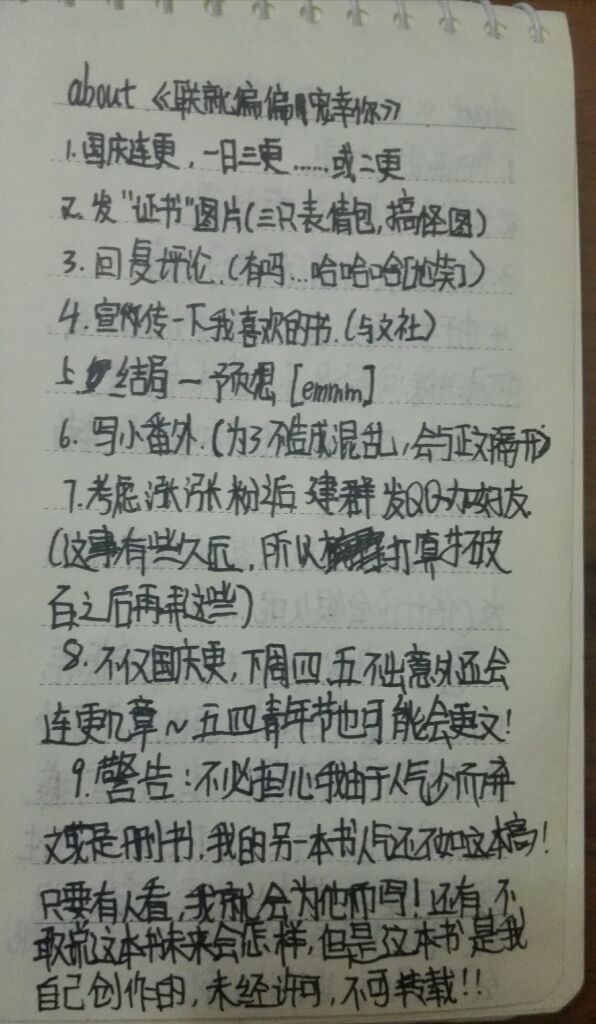 about 《联就偏偏宠幸你》
1.国庆连更,一日三更……或二更
2.发"证书"图片(三只表情包,搞怪图)
3.回复评论.(有吗...哈哈哈[地笑])
4.宣传一下我喜欢的书.(与文社)
5.结局一预想,[emmm]
6.写小番外.(为了不造成混乱,会与正文隔开)
7.考虑涨涨粉之后 建群 发QQ加好友.
(这事有些久远,所以打算先破
百之后再弄这些)
8.不仅国庆更,下周四,五不出意外还会
连更几章~五四青年节也可能会更文!
9.警告:不必担心我由于人气少而弃
文或是删书,我的另一本书人气还不如这本高!
只要有人看,我就会为他而写!还有,不
敢说这本书未来会怎样,但是这本书是我
自己创作的,未经许可,不可转载!!